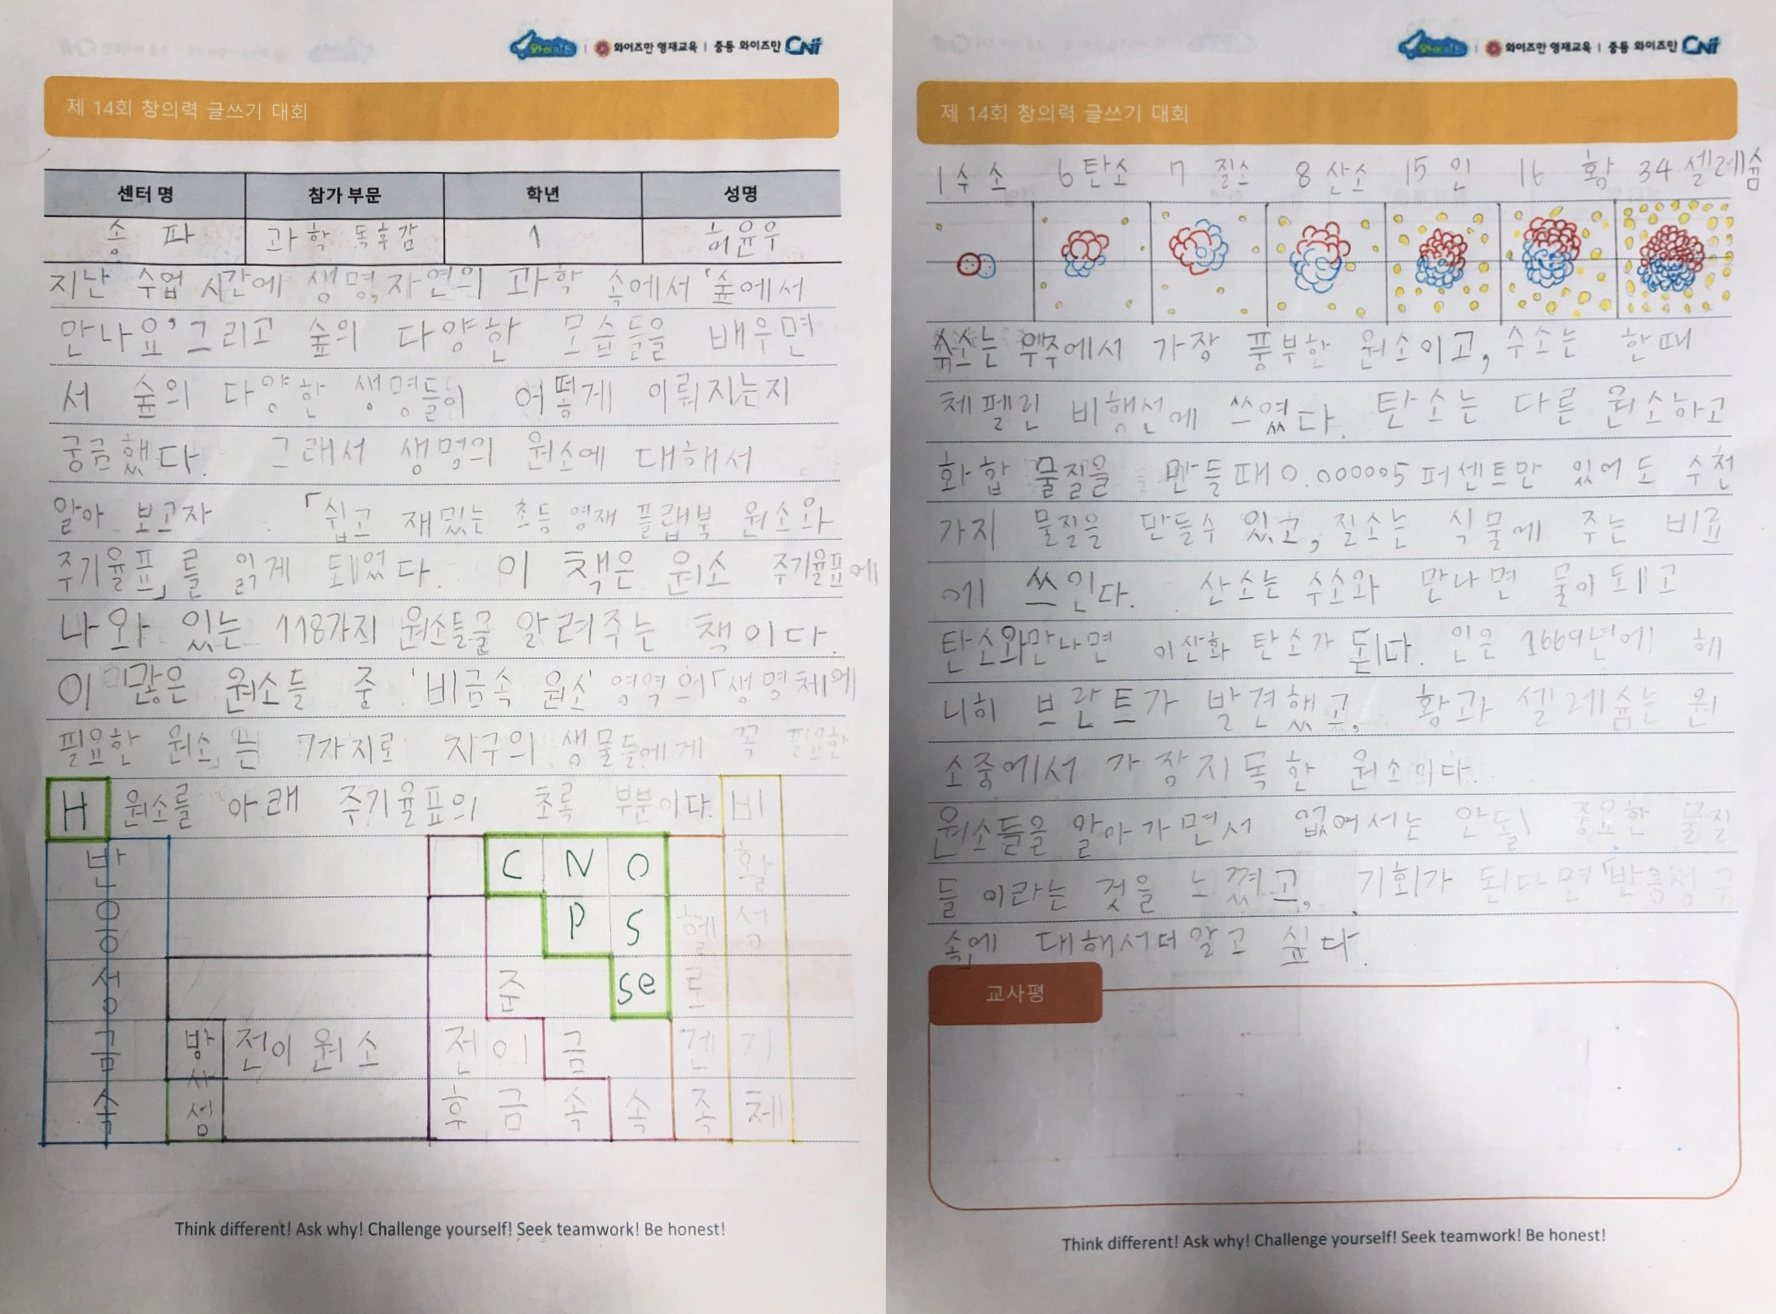 와이즈만 영재교육 | 중등 와이즈만 CNI
제 14회 창의력 글쓰기 대회
센터 명 참가 부문 학년 성명
송 파 과학 독후감 1 허윤우
지난 수업 시간에 생명,자연의 과학 속에서 '숲에서
만나요' 그리고 숲의 다양한 모습들을 배우면
서 숲의 다양한 생명들이 어떻게 이뤄지는지
궁금했다. 그래서 생명의 원소에 대해서
알아 보고자 「쉽고 재밌는 초등 영재 플랩북 원소와
주기율표」를 읽게 되었다. 이 책은 원소 주기율표에
나와 있는 118가지 원소들을 알려주는 책이다.
이 많은 원소들 중 '비금속 원소' 영역의「생명체에
필요한 원소」는 7가지로 지구의 생물들에게 꼭 필요한
H 원소를 아래 주기율표의 초록 부분이다. 비
반 C N O 활
응 P S 할 성
성 준 Se 로
금 방 전이 원소 전이 금 겐 기
속 사 성 후 금 속 속 족 체
Think different! Ask why! Challenge yourself! Seek teamwork! Be honest!
와이즈만 영재교육 | 중등 와이즈만 CNI
제 14회 창의력 글쓰기 대회
1 수소 6 탄소 7 질소 8 산소 15 인 16 황 34 셀레슘
수소는 우주에서 가장 풍부한 원소이고, 수소는 한때
체펠린 비행선에 쓰였다. 탄소는 다른 원소하고
화합 물질을 만들때 0.000005퍼센트만 있어도 수천
가지 물질을 만들수 있고, 질소는 식물에 주는 비료
에 쓰인다. 산소는 수소와 만나면 물이 되고
탄소와만나면 이산화 탄소가 된다. 인은 1669년에 헤
니히 브란트가 발견했고, 황과 셀레슘는 원
소중에서 가장지독한 원소이다.
원소들을 알아가면서 없어서는 안될 중요한 물질
들 이라는 것을 느꼈고, 기회가 된다면「반응성 금
속」에 대해서더 알고 싶다.
교사평
Think different! Ask why! Challenge yourself! Seek teamwork! Be honest!